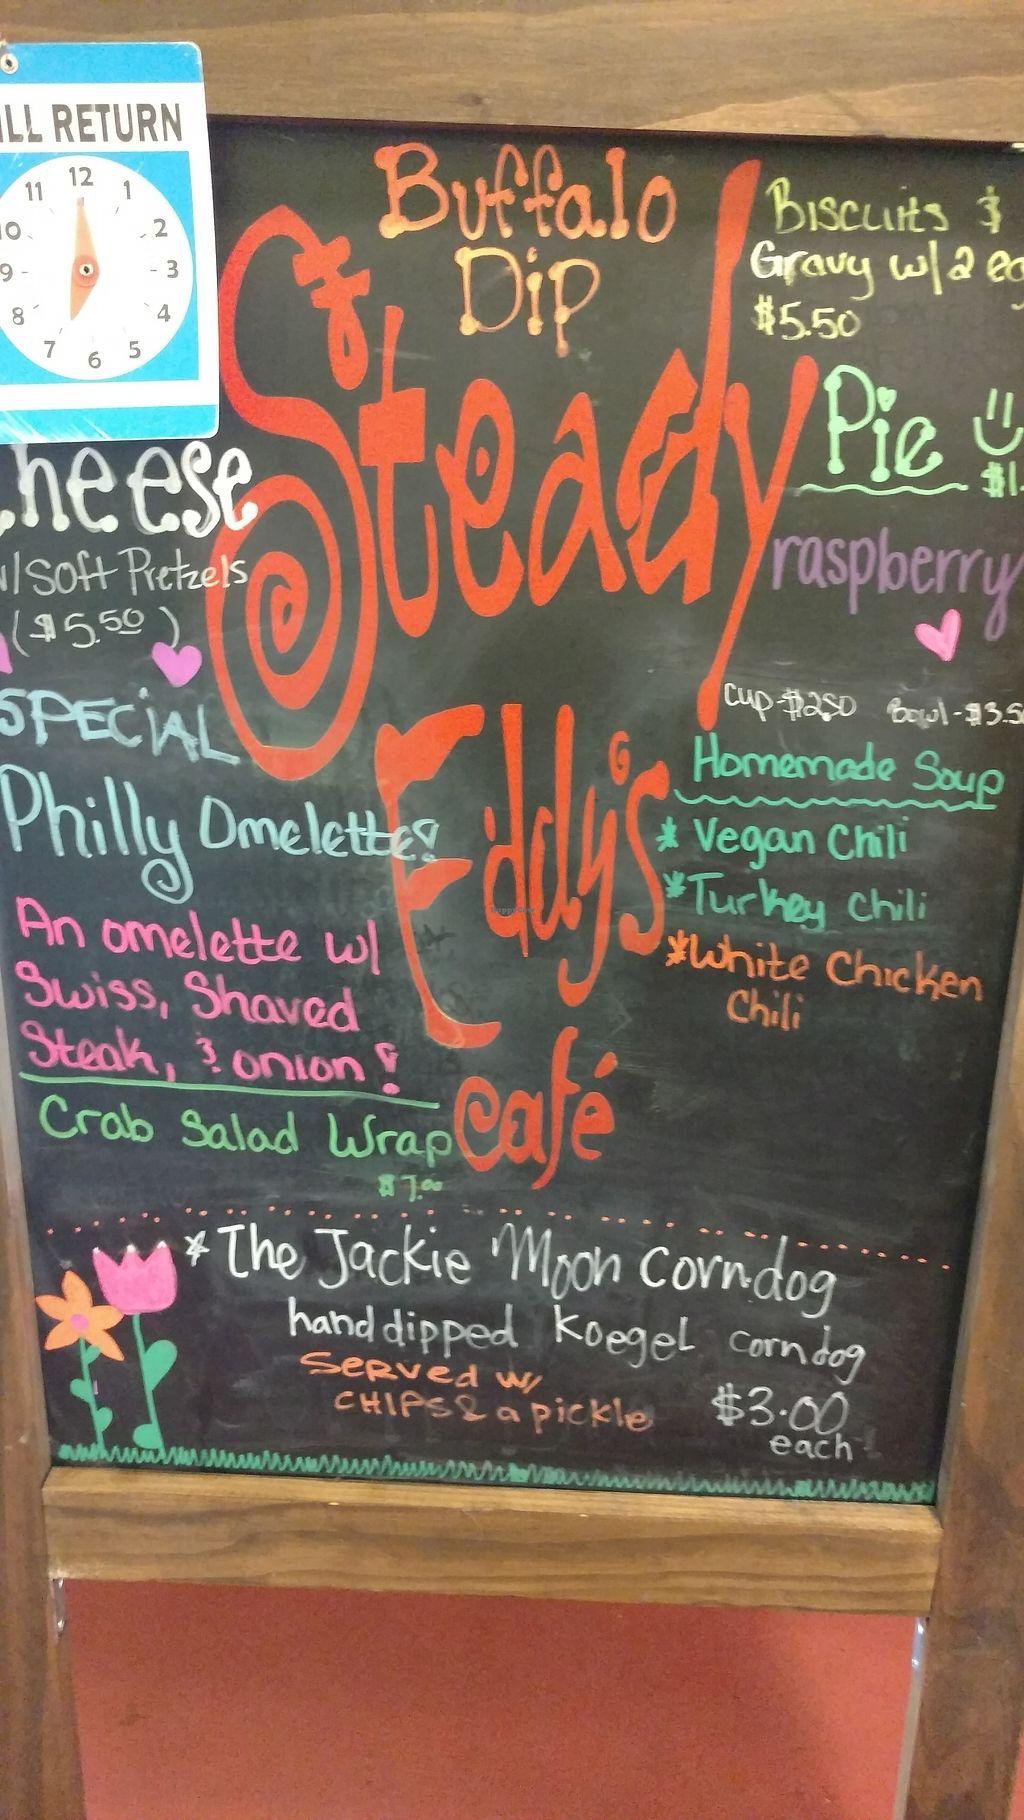 ILL RETURN
12
11 1
10 2
9 3
8 4
7 5
6
Buffalo
Dip
Steady
Eddy's
café
heese
w/ Soft Pretzels
($5.50)
SPECIAL
Philly Omelette!
An omelette w/
Swiss, Shaved
Steak, & onion!
Crab Salad Wrap
$7.00
Biscuits &
Gravy w/ 2 eg
$5.50
Pie
$1.
raspberry
Cup-$2.50 Bowl-$3.50
Homemade Soup
* Vegan Chili
* Turkey Chili
* White Chicken
Chili
* The Jackie Moon Corndog
hand dipped Koegel corndog
Served w/
CHIPS & a pickle
$3.00
each